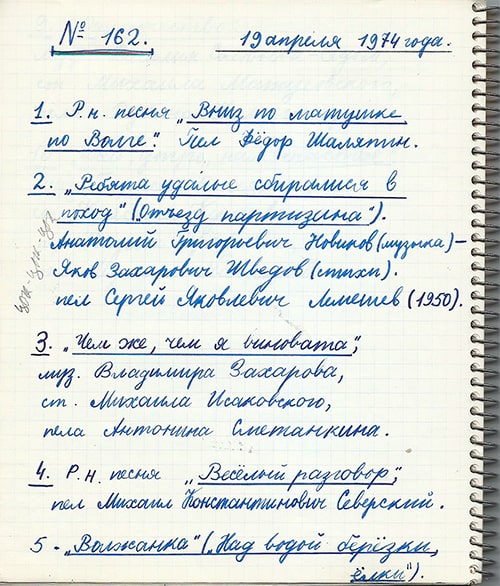 № 162. 19 апреля 1974 года.
1. Р.н. песня „Вниз по матушке
по Волге". Пел Фёдор Шаляпин.
2. „Ребята удалые собиралися в
поход" („Отъезд партизана").
Анатолий Григорьевич Новиков (музыка) –
Яков Захарович Шведов (стихи).
пел Сергей Яковлевич Лемешев (1950).
3. „Чем же, чем я виновата",
муз. Владимира Захарова,
ст. Михаила Исаковского,
пела Антонина Сметанкина.
4. Р.н. песня „Весёлый разговор",
пел Михаил Константинович Северский.
5 - „Волжанка" („Над водой берёзки,
ёлки").